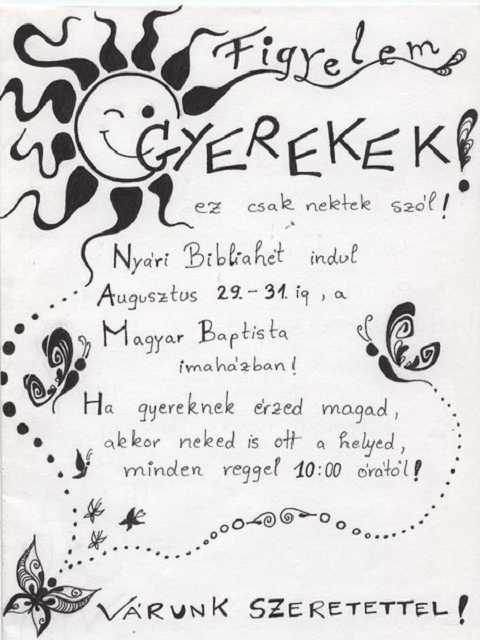 Figyelem
GYEREKEK!
ez csak nektek szól!
Nyári Bibliahét indul
Augusztus 29.-31.ig, a
Magyar Baptista
imaházban!
Ha gyereknek érzed magad,
akkor neked is ott a helyed,
minden reggel 10:00 órától!
VÁRUNK SZERETETTEL!